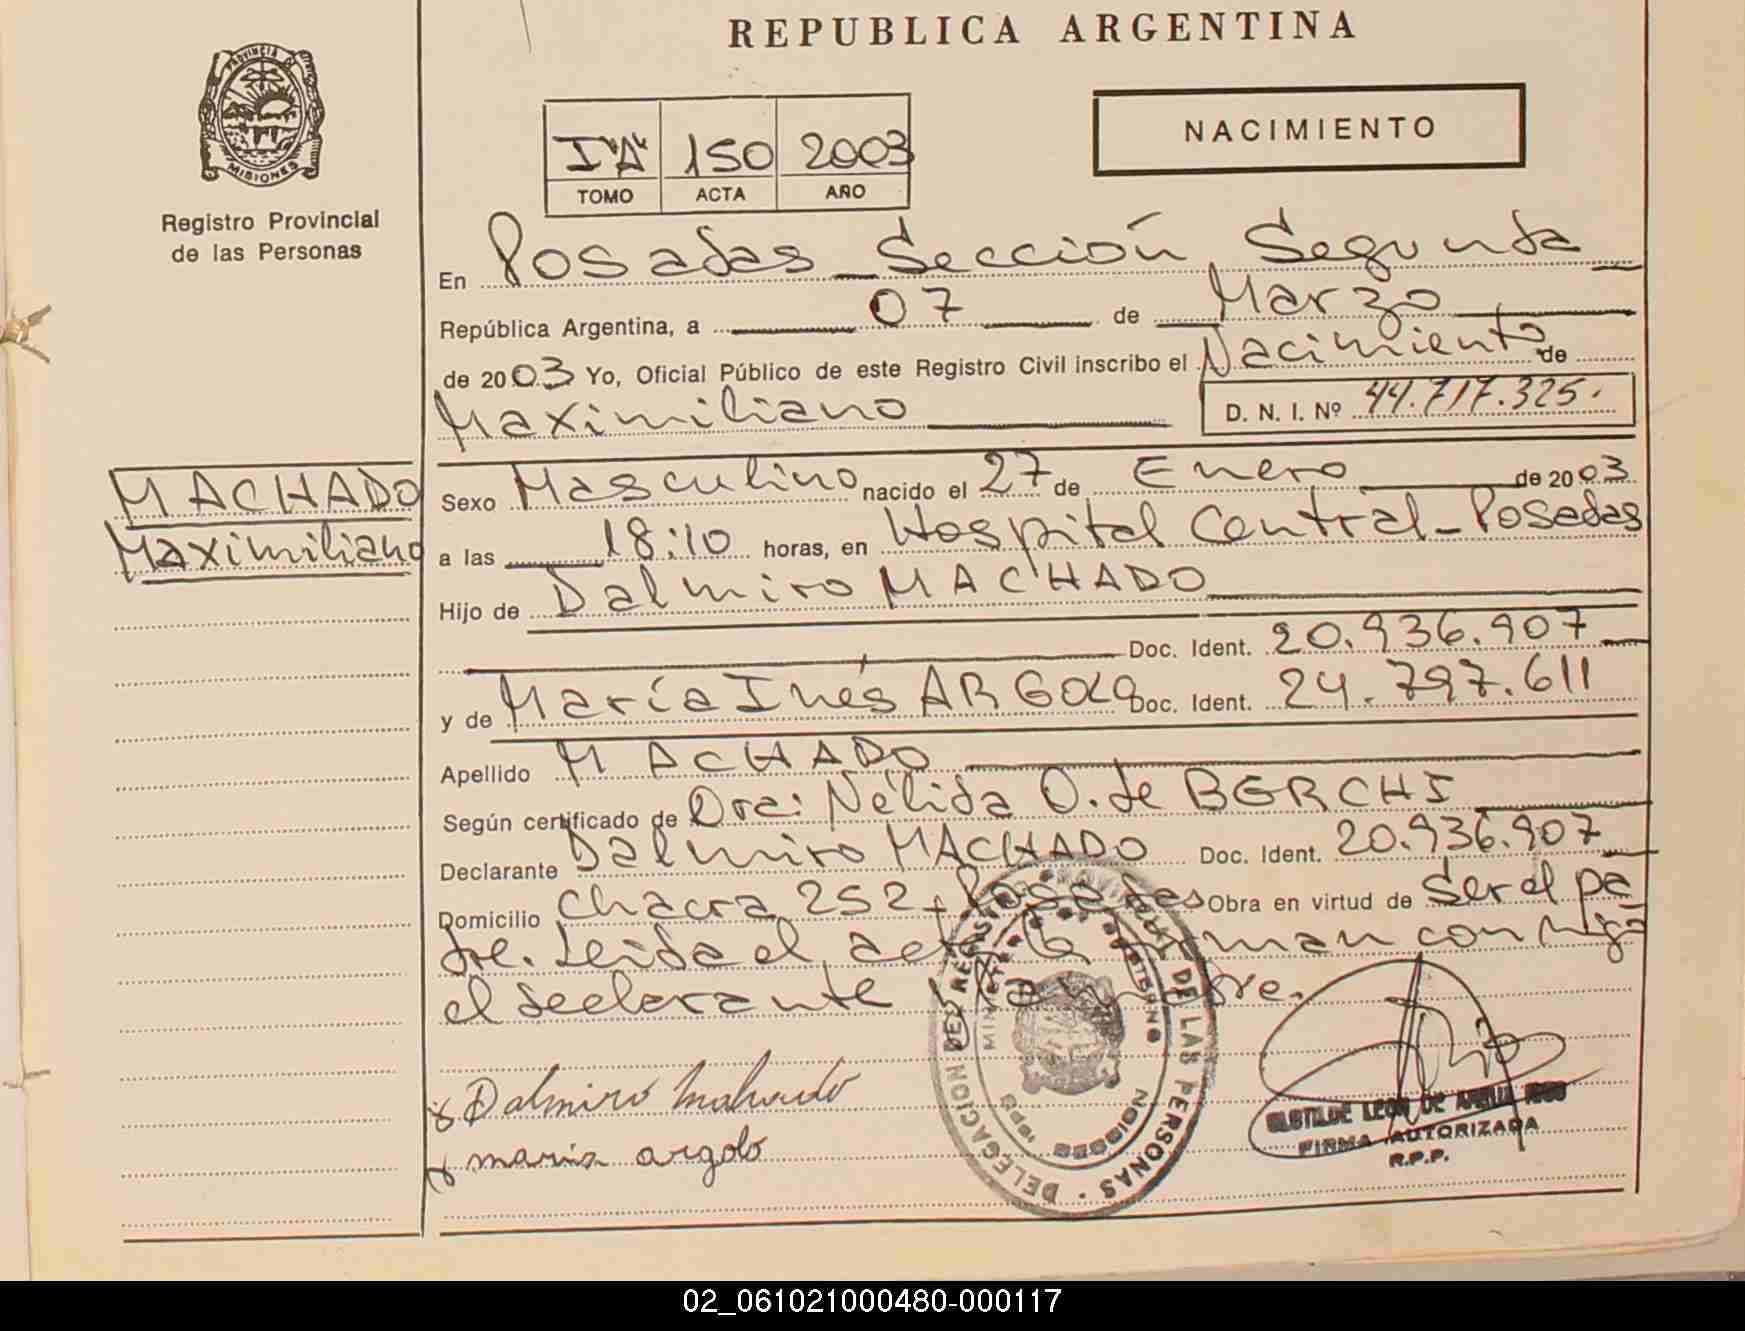 REPUBLICA ARGENTINA
PROVINCIA DE
MISIONES
Registro Provincial
de las Personas
I "A" 150 2003
TOMO ACTA AÑO
NACIMIENTO
En Posadas Sección Segunda
República Argentina, a 07 de Marzo
de 2003 Yo, Oficial Público de este Registro Civil inscribo el Nacimiento de
Maximiliano D. N. I. Nº 44.717.325.
MACHADO
Maximiliano
Sexo Masculino nacido el 27 de Enero de 2003
a las 18:10 horas, en Hospital Central - Posadas
Hijo de Dalmiro MACHADO
Doc. Ident. 20.936.907
y de María Inés ARGOLO Doc. Ident. 24.797.611
Apellido MACHADO
Según certificado de Dra: Nélida O. de BERCHI
Declarante Dalmiro MACHADO Doc. Ident. 20.936.907
Domicilio Chacra 252 - Posadas Obra en virtud de Ser el pa
dre. Leída el acta la firman conmigo
el declarante y la madre.
DELEGACION DEL REGISTRO PROVINCIAL DE LAS PERSONAS
MINISTERIO DE GOBIERNO
MISIONES
Dalmiro Machado
maria argolo
CLOTILDE LEON DE
FIRMA AUTORIZADA
R.P.P.
02_061021000480-000117